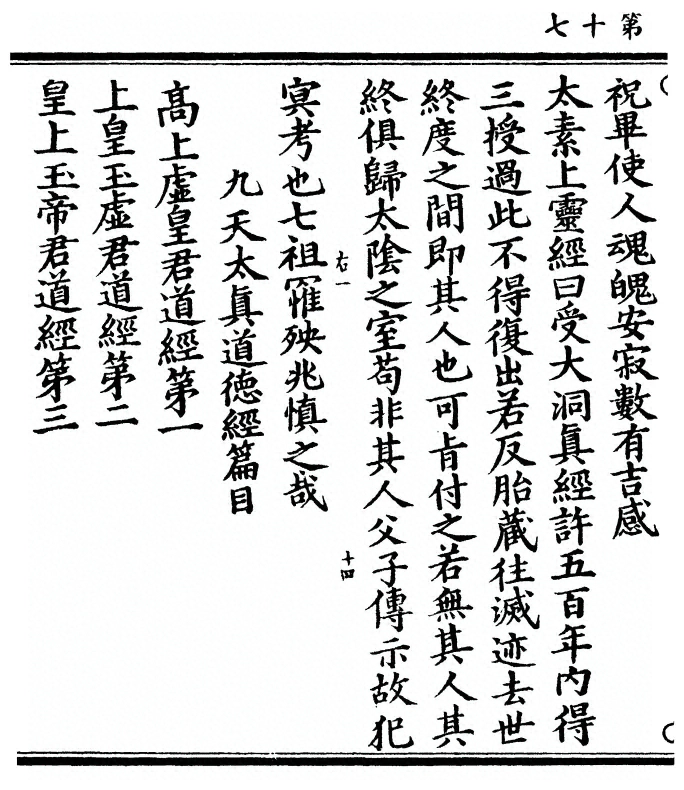 第十七
祝畢使人魂魄安寂數有吉感
太素上靈經曰受大洞眞經許五百年内得
三授過此不得復出若反胎藏往滅迹去世
終度之間即其人也可旨付之若無其人其
終俱歸太陰之室苟非其人父子傳示故犯
右一
十四
冥考也七祖罹殃兆慎之哉
九天太眞道德經篇目
髙上虛皇君道經第一
上皇玉虛君道經第二
皇上玉帝君道經第三